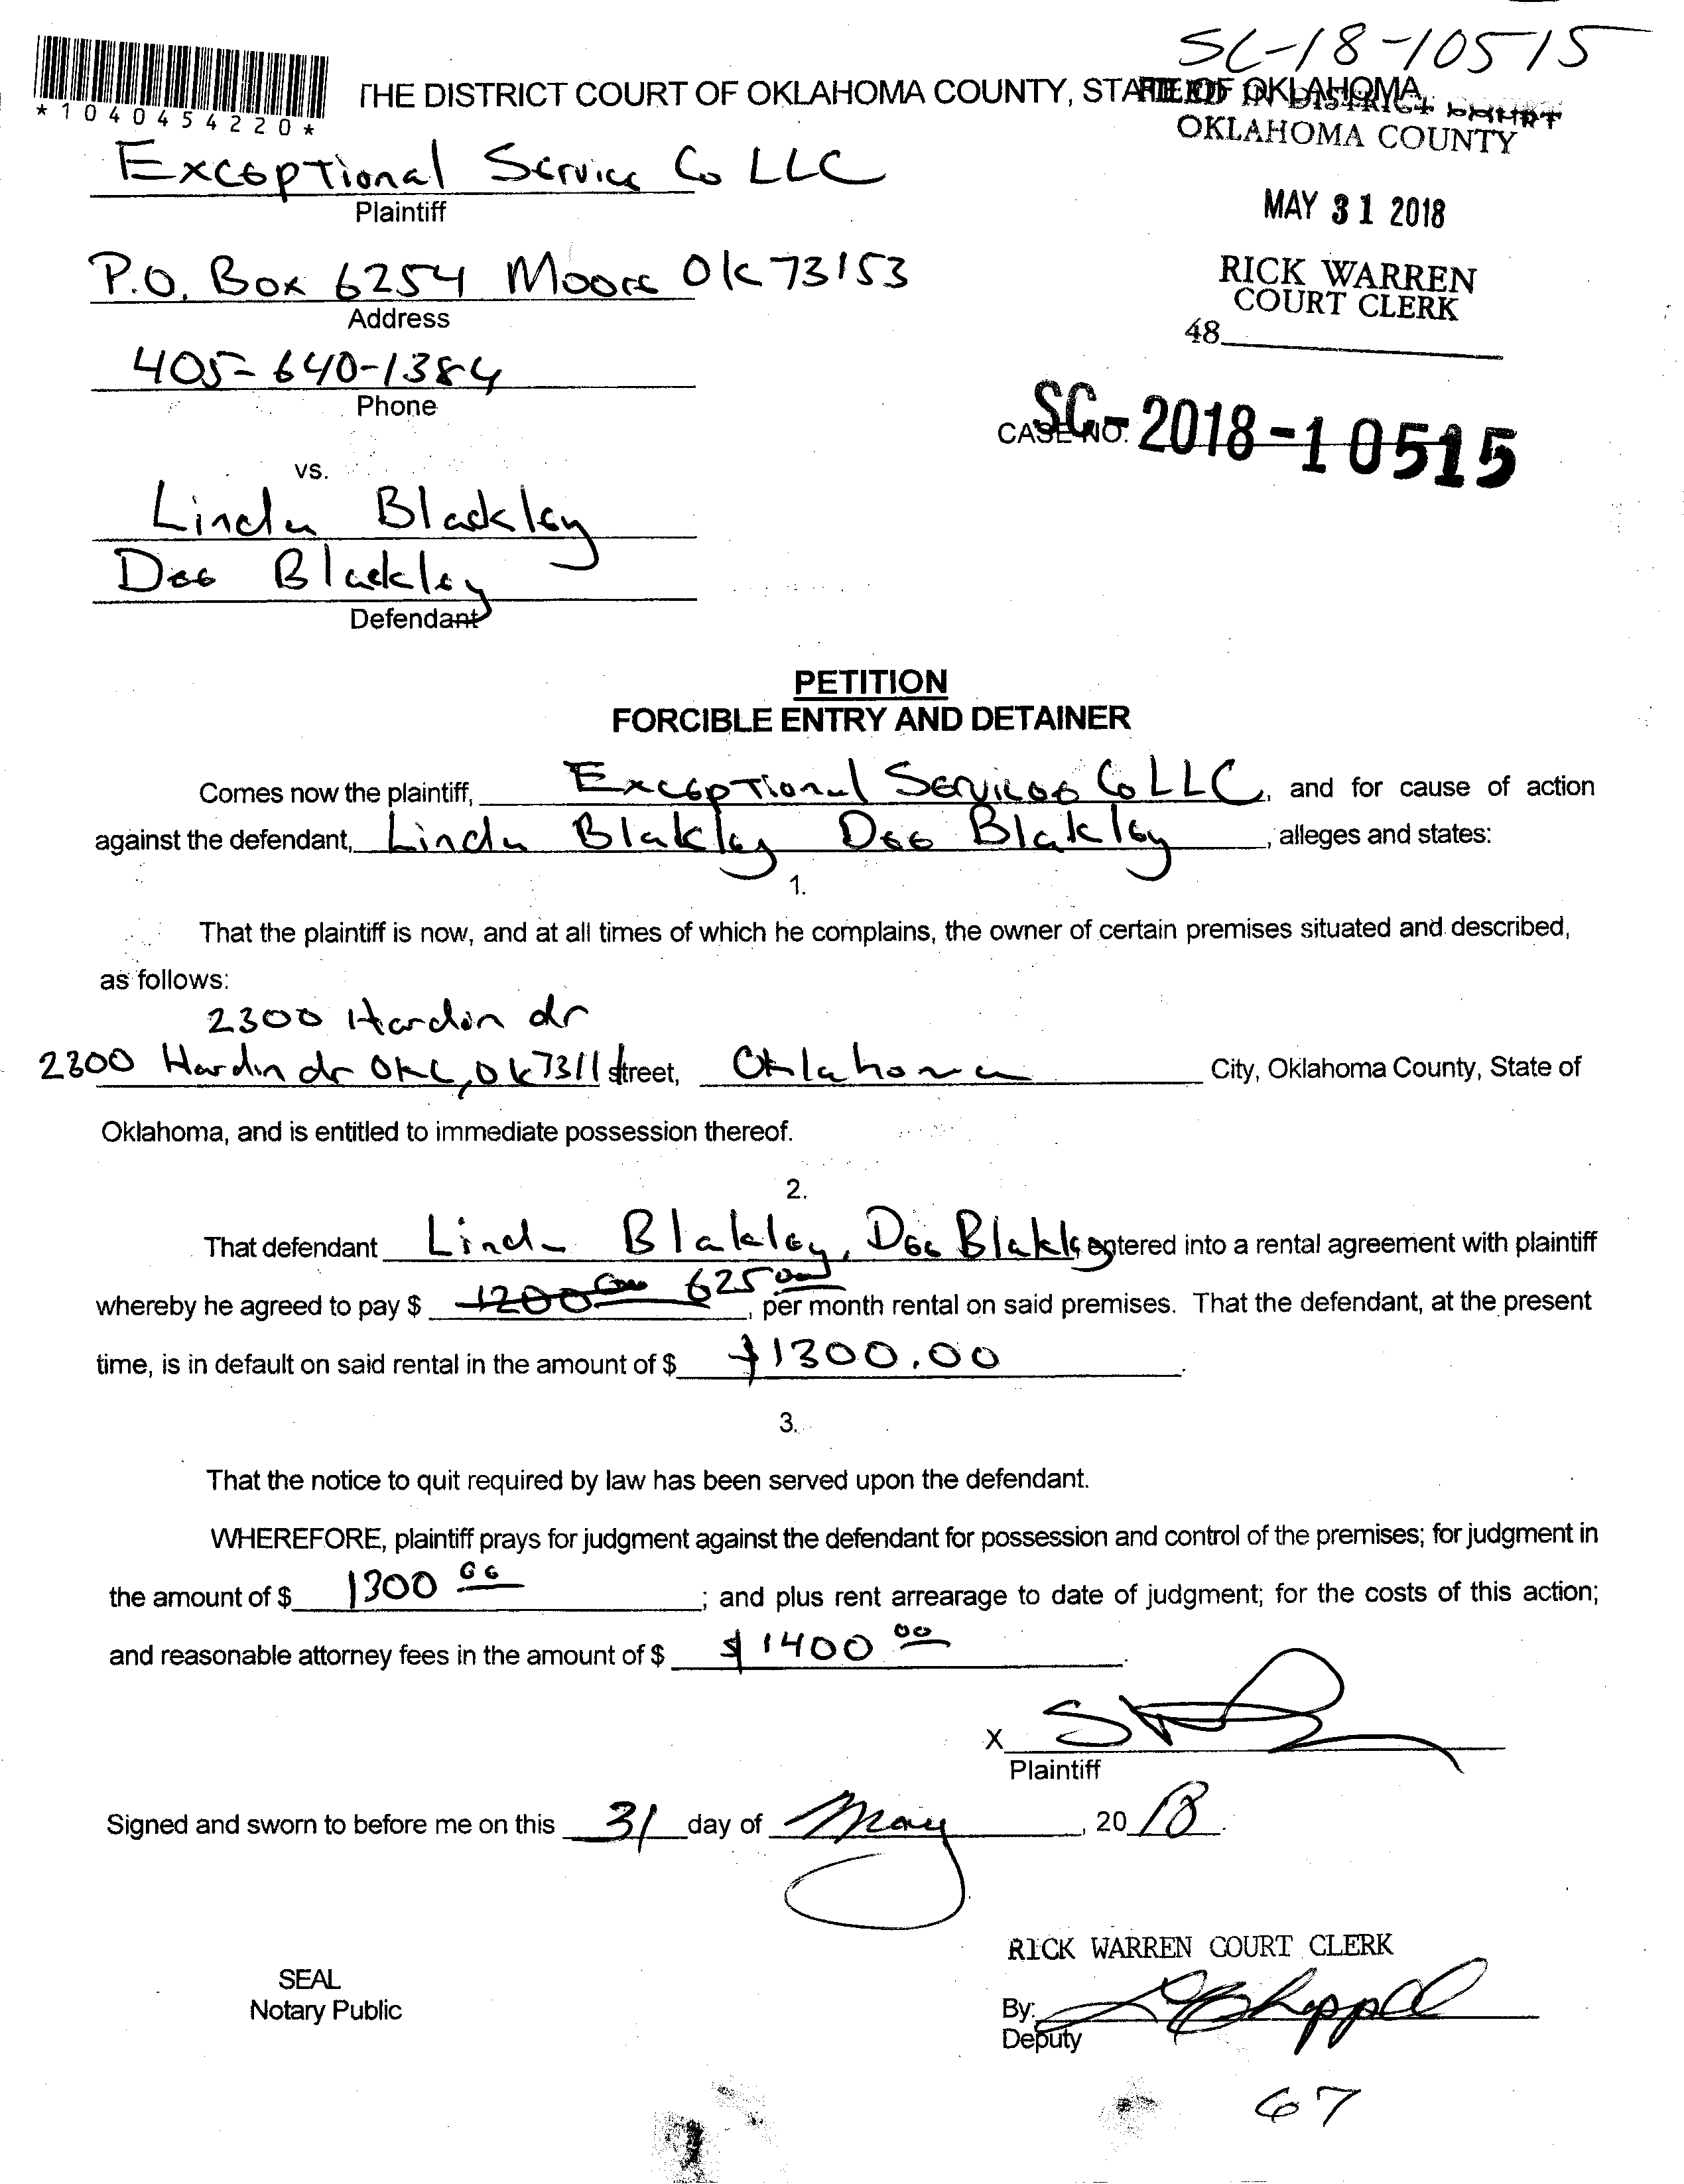 SC-18-10515
THE DISTRICT COURT OF OKLAHOMA COUNTY, STATE OF OKLAHOMA
FILED IN DISTRICT COURT
OKLAHOMA COUNTY
*1040454220*
Exceptional Service Co LLC
Plaintiff
MAY 31 2018
P.O. Box 6254 Moore Ok 73153
Address
RICK WARREN
COURT CLERK
48
405-640-1384
Phone
CASE NO. SC-2018-10515
vs.
Linda Blackley
Dee Blackley
Defendant
PETITION
FORCIBLE ENTRY AND DETAINER
Comes now the plaintiff, Exceptional Services Co LLC, and for cause of action
against the defendant, Linda Blakley Dee Blakley, alleges and states:
1.
That the plaintiff is now, and at all times of which he complains, the owner of certain premises situated and described,
as follows:
2300 Hardin dr
2300 Hardin dr OKC, Ok 7311 street, Oklahoma City, Oklahoma County, State of
Oklahoma, and is entitled to immediate possession thereof.
2.
That defendant Linda Blakley, Dee Blakley entered into a rental agreement with plaintiff
whereby he agreed to pay $ 1200 00 625 00, per month rental on said premises. That the defendant, at the present
time, is in default on said rental in the amount of $ $1300.00.
3.
That the notice to quit required by law has been served upon the defendant.
WHEREFORE, plaintiff prays for judgment against the defendant for possession and control of the premises; for judgment in
the amount of $ 1300 00; and plus rent arrearage to date of judgment; for the costs of this action;
and reasonable attorney fees in the amount of $ $1400 00.
X
Plaintiff
Signed and sworn to before me on this 31 day of May, 2018.
RICK WARREN COURT CLERK
SEAL
Notary Public
By:
Deputy
67